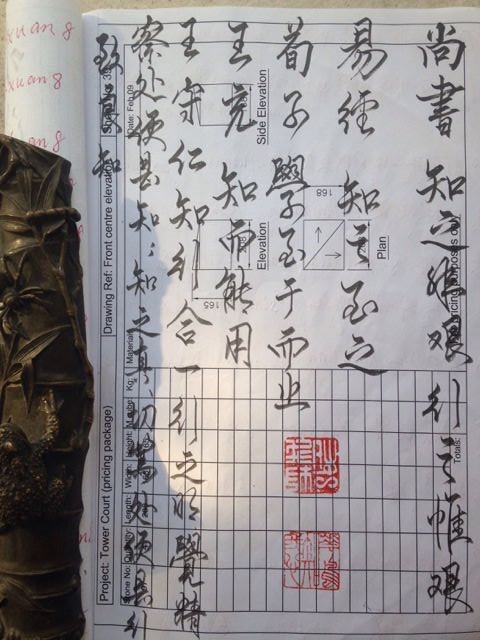 尚書 知之非艱行之惟艱
易經 知至至之
荀子 學至于而止
王充 知而能用
王守仁 知行合一 行之明覺精
察处便是知;知之真切篤处便是行
致良知
Side Elevation
Elevation
Plan
168
165
Date: Feb 09
Drawing Ref: Front centre elevation
Project: Tower Court (pricing package)
Stone No: Quantity: Length: Width: Height: M/cube: Kg: Material:
Totals:
xuan 8
xuan 8